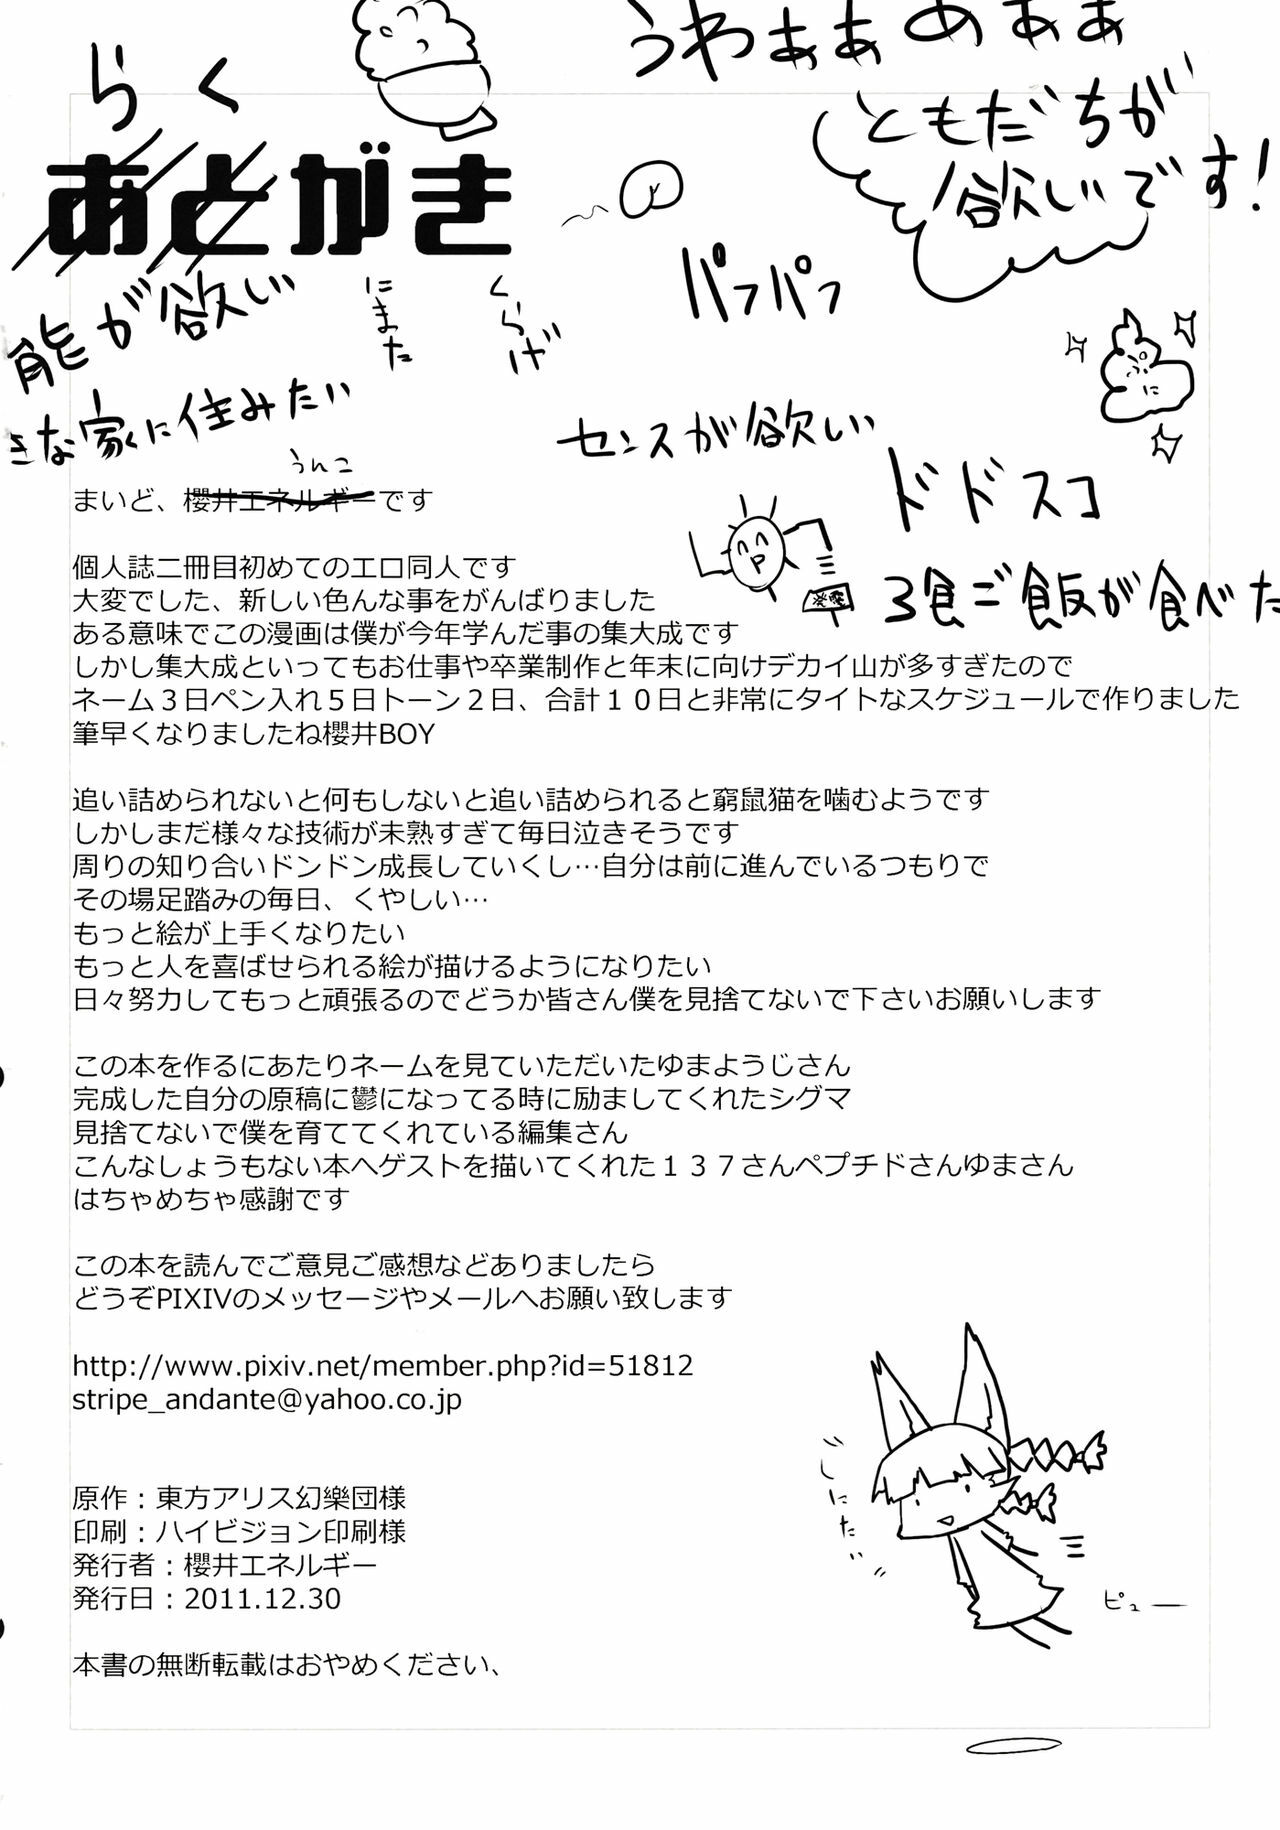 うわぁぁあぁぁ
ともだちが
欲しいです！
らく
あとがき
パフパフ
能が欲しい
にまた
くらげ
きな家に住みたい
センスが欲しい
ドドスコ
3食ご飯が食べた
うんこ
まいど、櫻井エネルギーです
個人誌二冊目初めてのエロ同人です
大変でした、新しい色んな事をがんばりました
ある意味でこの漫画は僕が今年学んだ事の集大成です
しかし集大成といってもお仕事や卒業制作と年末に向けデカイ山が多すぎたので
ネーム３日ペン入れ５日トーン２日、合計１０日と非常にタイトなスケジュールで作りました
筆早くなりましたね櫻井BOY
追い詰められないと何もしないと追い詰められると窮鼠猫を噛むようです
しかしまだ様々な技術が未熟すぎて毎日泣きそうです
周りの知り合いドンドン成長していくし…自分は前に進んでいるつもりで
その場足踏みの毎日、くやしい…
もっと絵が上手くなりたい
もっと人を喜ばせられる絵が描けるようになりたい
日々努力してもっと頑張るのでどうか皆さん僕を見捨てないで下さいお願いします
この本を作るにあたりネームを見ていただいたゆまようじさん
完成した自分の原稿に鬱になってる時に励ましてくれたシグマ
見捨てないで僕を育ててくれている編集さん
こんなしょうもない本へゲストを描いてくれた１３７さんペプチドさんゆまさん
はちゃめちゃ感謝です
この本を読んでご意見ご感想などありましたら
どうぞPIXIVのメッセージやメールへお願い致します
http://www.pixiv.net/member.php?id=51812
stripe_andante@yahoo.co.jp
原作：東方アリス幻樂団様
印刷：ハイビジョン印刷様
発行者：櫻井エネルギー
発行日：2011.12.30
本書の無断転載はおやめください、
しにたい
ピュー